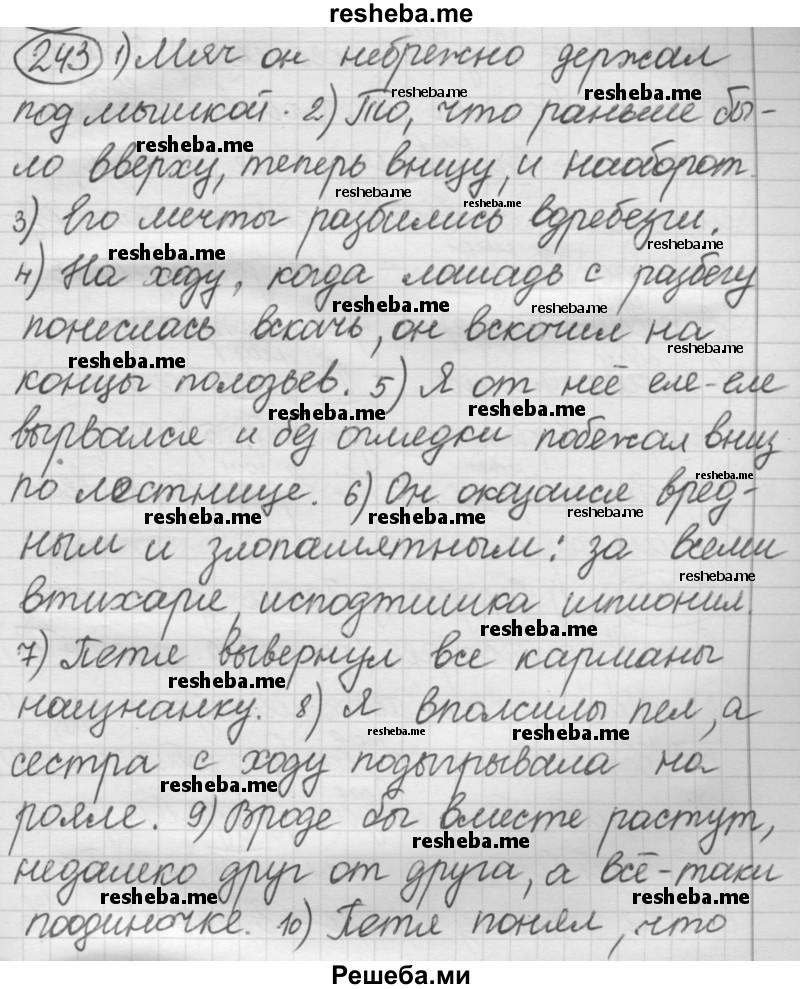 resheba.me
243 1) Мяч он небрежно держал
resheba.me resheba.me
под мышкой. 2) То, что раньше бы-
resheba.me
ло вверху, теперь внизу, и наоборот.
resheba.me resheba.me
3) Его мечты разбились вдребезги.
resheba.me resheba.me
4) На ходу, когда лошадь с разбегу
resheba.me resheba.me
понеслась вскачь, он вскочил на
resheba.me resheba.me
концы полозьев. 5) Я от неё еле-еле
resheba.me resheba.me
вырвался и без оглядки побежал вниз
resheba.me
по лестнице. 6) Он оказался вред-
resheba.me resheba.me resheba.me
ным и злопамятным: за всеми
resheba.me
втихаря, исподтишка шпионил.
resheba.me
7) Петя вывернул все карманы
resheba.me
наизнанку. 8) Я вполсилы пел, а
resheba.me resheba.me
сестра с ходу подыгрывала на
resheba.me
рояле. 9) Вроде бы вместе растут,
resheba.me
недалеко друг от друга, а всё-таки
resheba.me resheba.me
поодиночке. 10) Петя понял, что
Решеба.ми